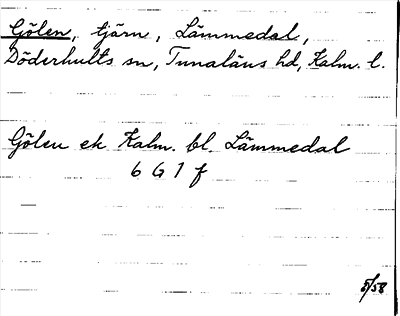 Gölen, tjärn, Lämmedal,
Döderhults sn, Tunaläns hd, Kalm. l.
Gölen ek Kalm. bl. Lämmedal
6 G 1 f
5/58